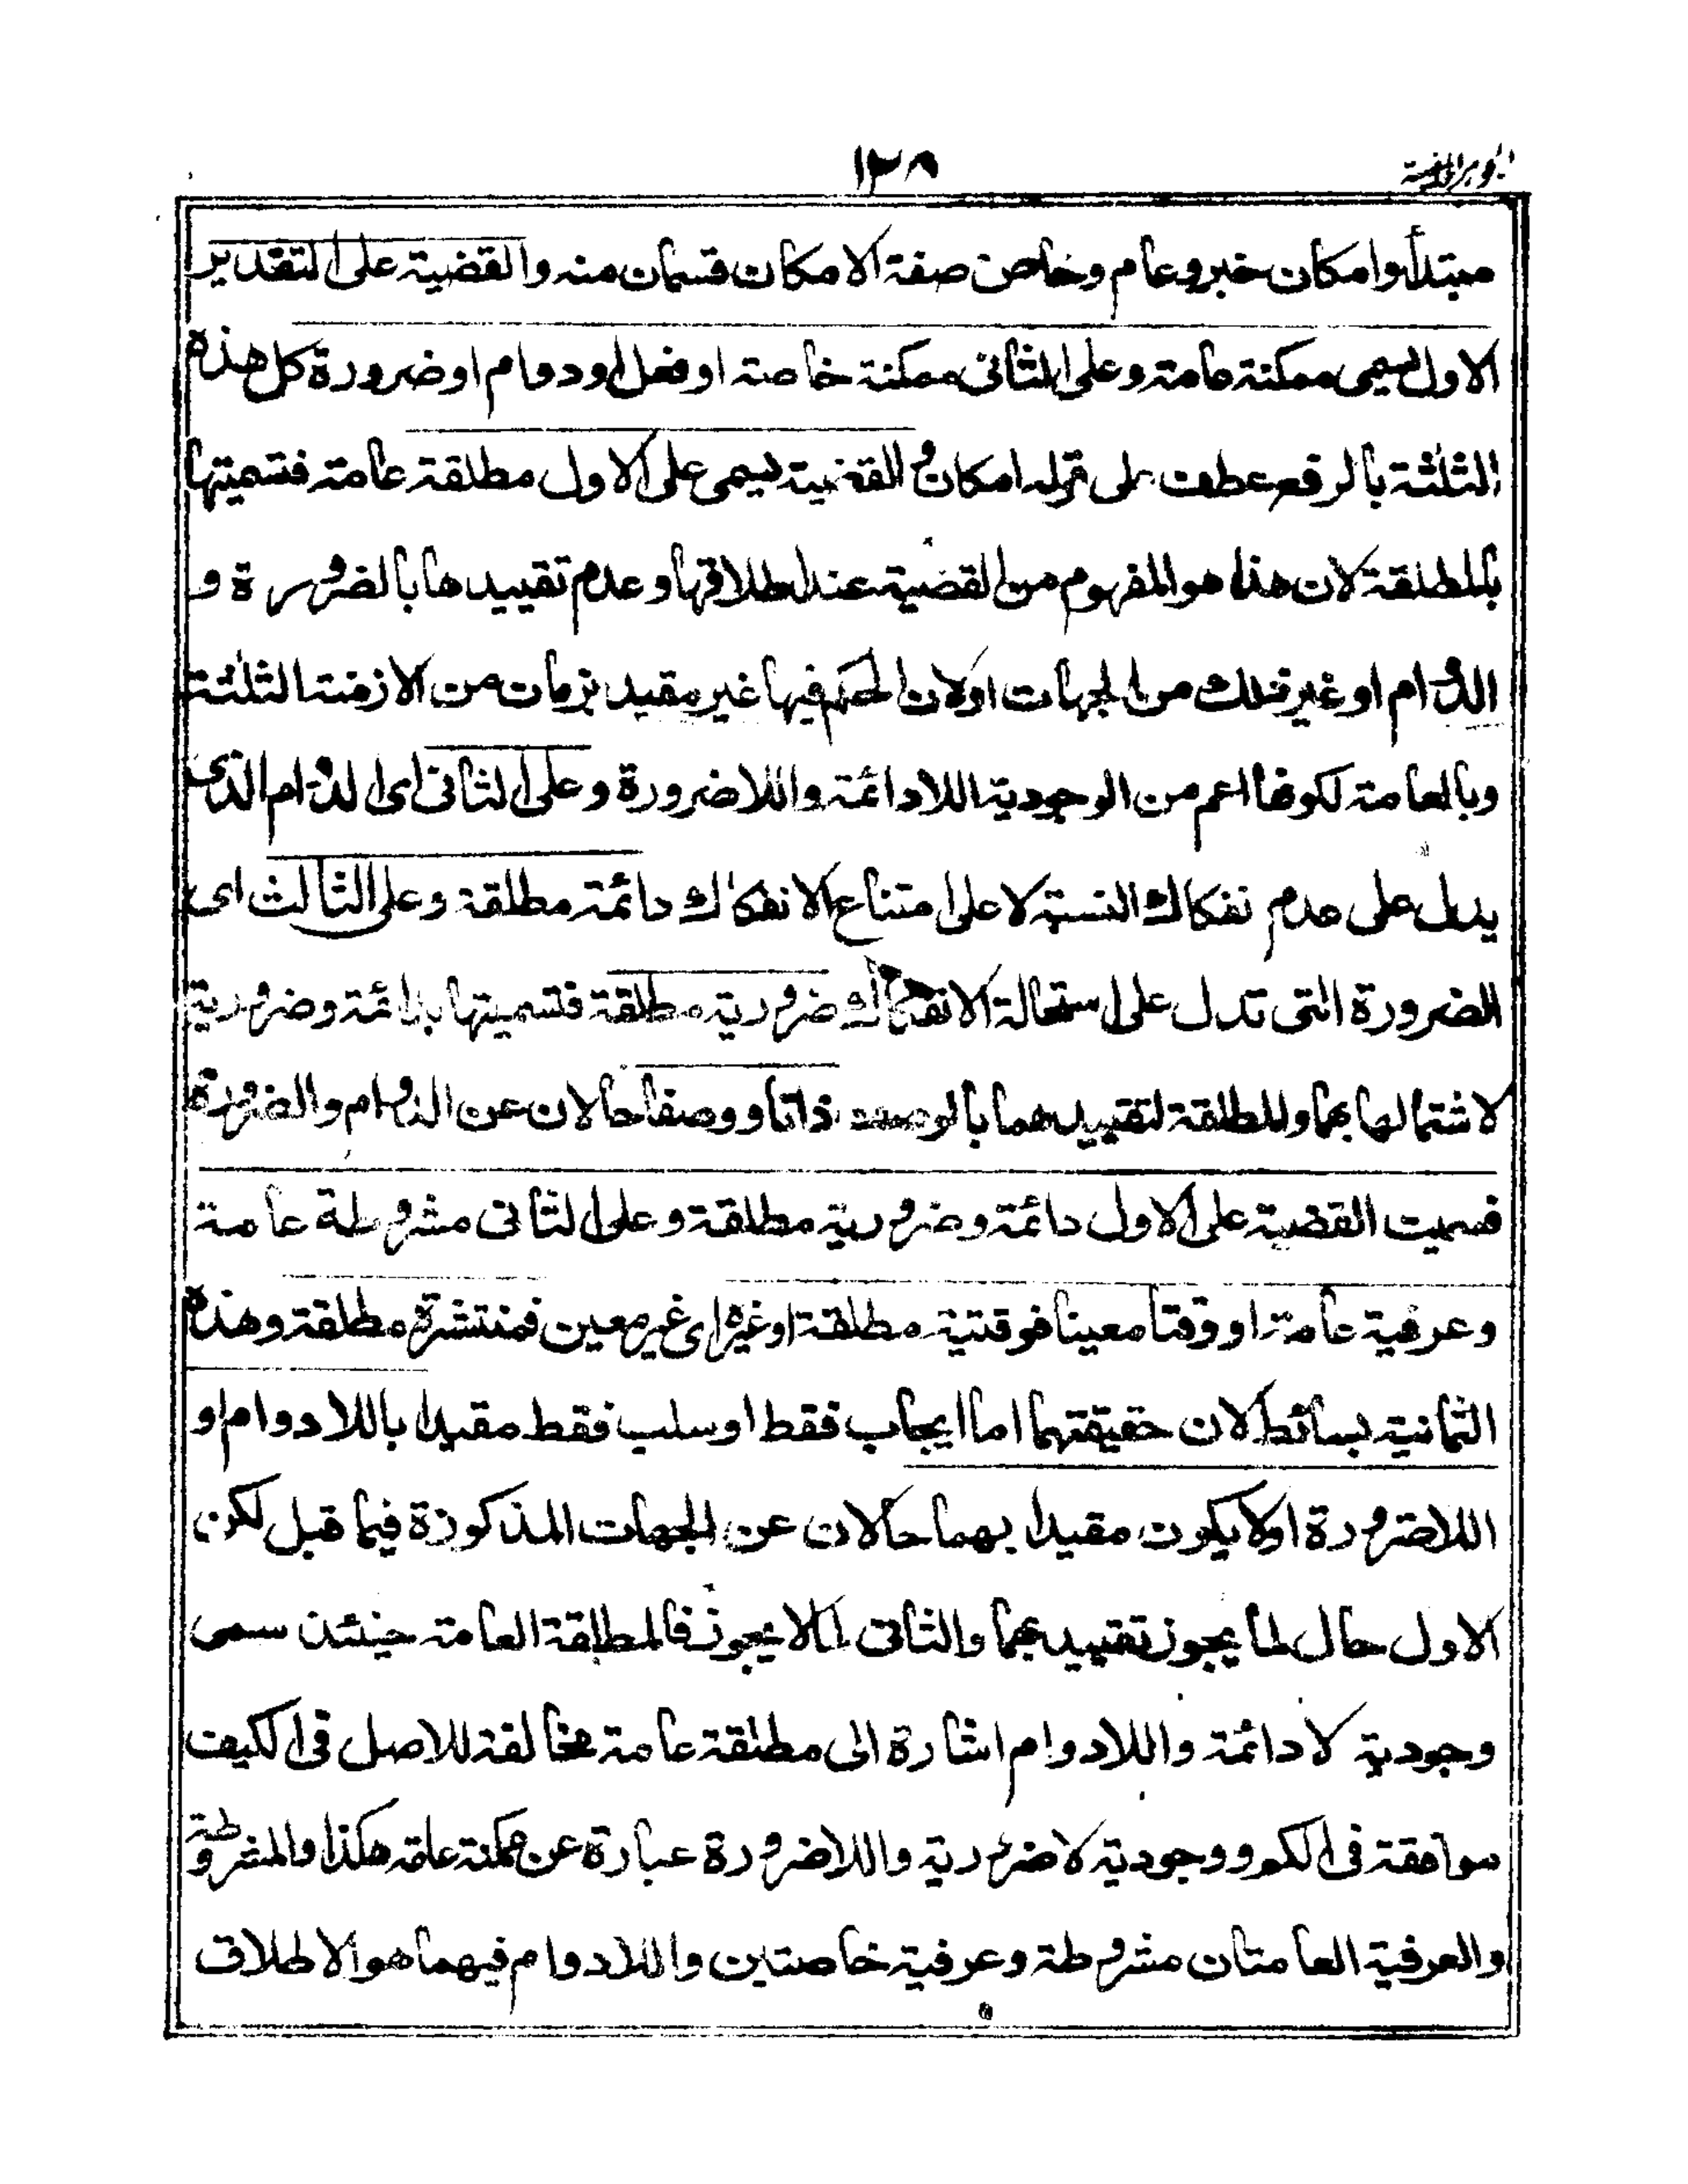 ١٢٨
مبتدأ وامكان خبر وعام وخاص صفة الامكان قسمان منه والقضية على التقدير
الاول يسمى ممكنة عامة وعلى الثانى ممكنة خاصة او فعل او دوام او ضرورة كل هذه
الثلثة بالرفع عطف على قوله امكان و القضية يسمى على الاول مطلقة عامة فتسميتها
بالمطلقة لان هذا هو المفهوم من القضية عند اطلاقها وعدم تقييدها بالضرورة و
الدوام او غير ذلك من الجهات اولان الحكم فيها غير مقيد بزمان من الازمنة الثلثة
وبالعامة لكونها اعم من الوجودية اللادائمة واللاضرورة وعلى الثانى اى الدوام الذى
يدل على عدم نفكاك النسبة لا على امتناع الانفكاك دائمة مطلقة وعلى الثالث اى
الضرورة التى تدل على استحالة الانفكاك ضرورية مطلقة فتسميتها بدائمة وضرورية
لاشتمالها بهما والمطلقة لتقييدهما بالوصف ذاتا ووصفا حالان عن الدوام والضرورة
فسميت القضية على الاول دائمة وضرورية مطلقة وعلى الثانى مشروطة عامة
وعرفية عامة او وقتا معينا فوقتية مطلقة او غيره اى غير معين فمنتشرة مطلقة وهذه
الثمانية بسائط لان حقيقتهما اما ايجاب فقط او سلب فقط مقيدا باللادوام او
اللاضرورة اولا يكون مقيدا بهما حالان عن الجهات المذكورة فيما قبل لكن
الاول حال لما يجوز تقييده بهما والثانى لما لا يجوز فالمطلقة العامة حينئذ سمى
وجودية لا دائمة واللادوام اشارة الى مطلقة عامة مخالفة للاصل فى الكيف
موافقة فى الكم و وجودية لا ضرورية واللاضرورة عبارة عن ممكنة عامة هكذا والمشروطة
والعرفية العامتان مشروطة وعرفية خاصتين واللادوام فيهما هو الاطلاق